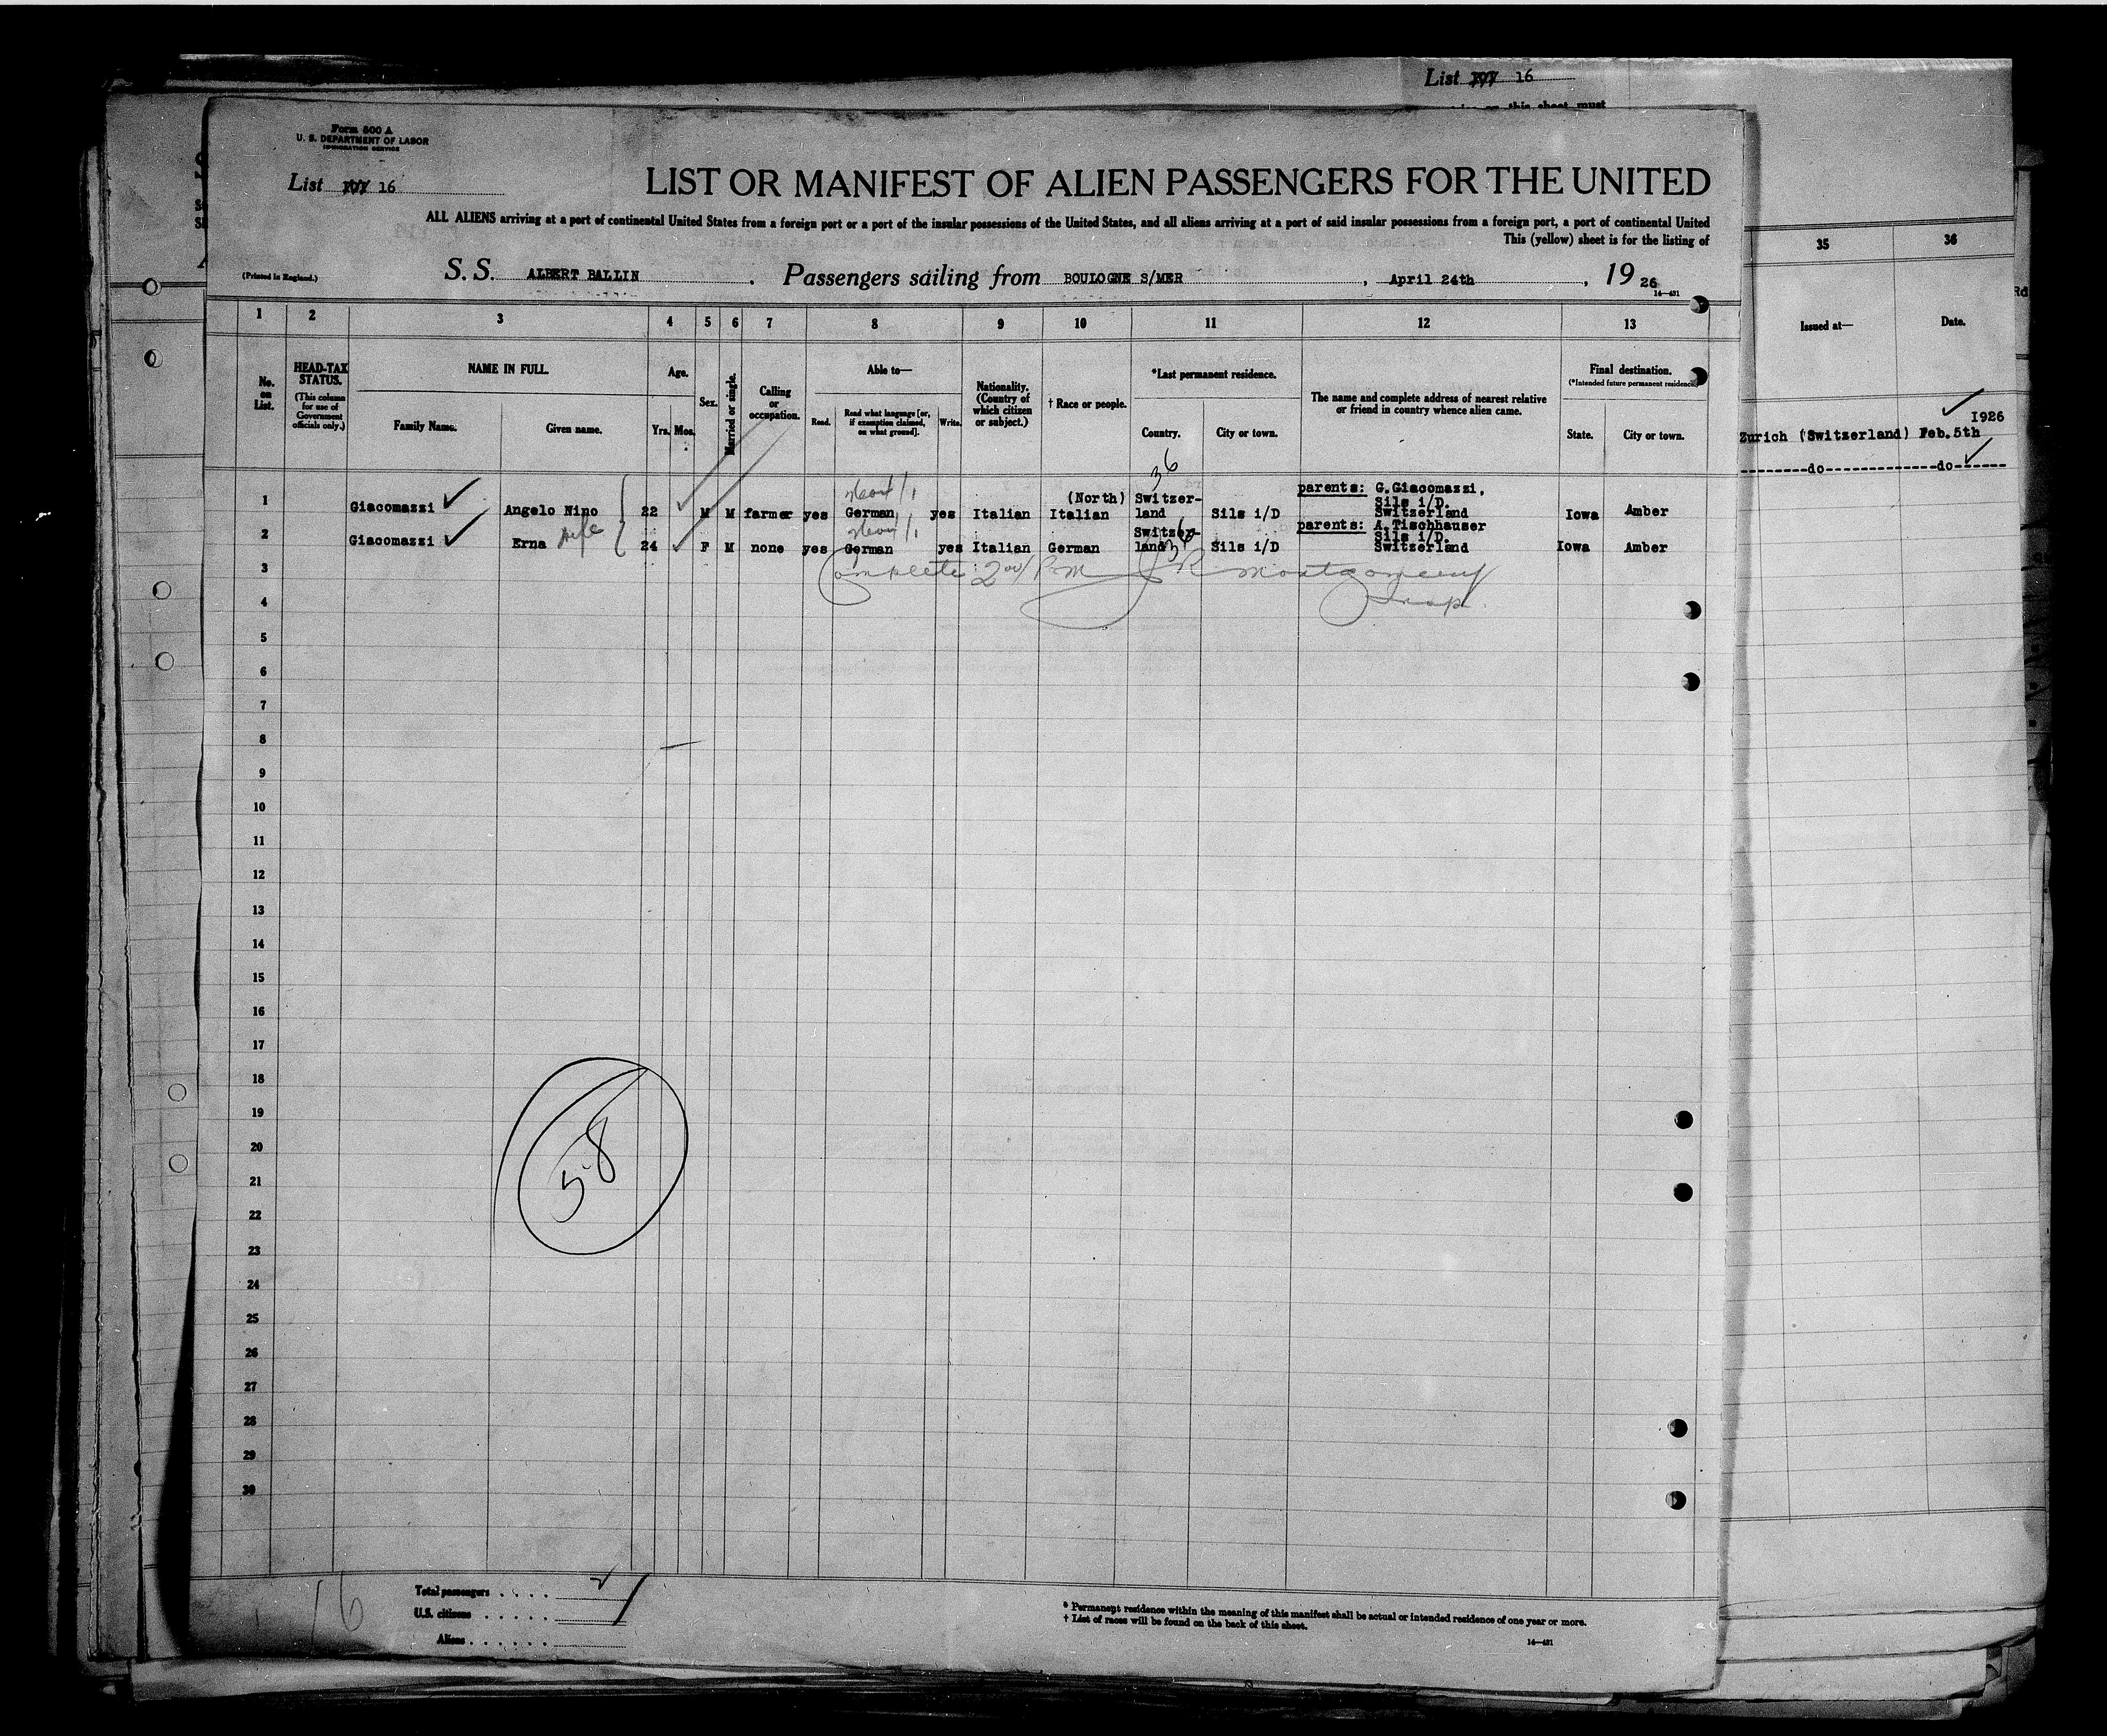 List 16
Form 500 A
U. S. DEPARTMENT OF LABOR
IMMIGRATION SERVICE
List 16
LIST OR MANIFEST OF ALIEN PASSENGERS FOR THE UNITED
ALL ALIENS arriving at a port of continental United States from a foreign port or a port of the insular possessions of the United States, and all aliens arriving at a port of said insular possessions from a foreign port, a port of continental United
This (yellow) sheet is for the listing of
(Printed in England.)
S. S. ALBERT BALLIN . Passengers sailing from BOULOGNE S/MER , April 24th , 19 26
14—481
1 2 3 4 5 6 7 8 9 10 11 12 13
35 36
No. on List.
HEAD-TAX STATUS.
(This column for use of Government officials only.)
NAME IN FULL.
Family Name. Given name.
Age.
Yrs. Mos.
Sex.
Married or single.
Calling or occupation.
Able to—
Read. Read what language [or, if exemption claimed, on what ground]. Write.
Nationality. (Country of which citizen or subject.)
† Race or people.
*Last permanent residence.
Country. City or town.
The name and complete address of nearest relative or friend in country whence alien came.
Final destination.
(*Intended future permanent residence.)
State. City or town.
Issued at— Date.
1926
Zurich (Switzerland) Feb. 5th
--------do-------------do------
36
1 Giacomazzi Angelo Nino 22 M M farmer yes German yes Italian (North) Italian Switzer-land Sils i/D parents: G. Giacomazzi, Sils i/D. Switzerland Iowa Amber
2 Giacomazzi Erna wife 24 F M none yes German yes Italian German Switzer-land 36 Sils i/D parents: A. Tischhauser Sils i/D. Switzerland Iowa Amber
3 Complete Montgomery
4 Insp.
5
6
7
8
9
10
11
12
13
14
15
16
17
18
19
20
21
22
23
24
25
26
27
28
29
30
58
16
Total passengers . . . .
U.S. citizens . . . . .
Aliens . . . . . .
* Permanent residence within the meaning of this manifest shall be actual or intended residence of one year or more.
† List of races will be found on the back of this sheet.
14—481